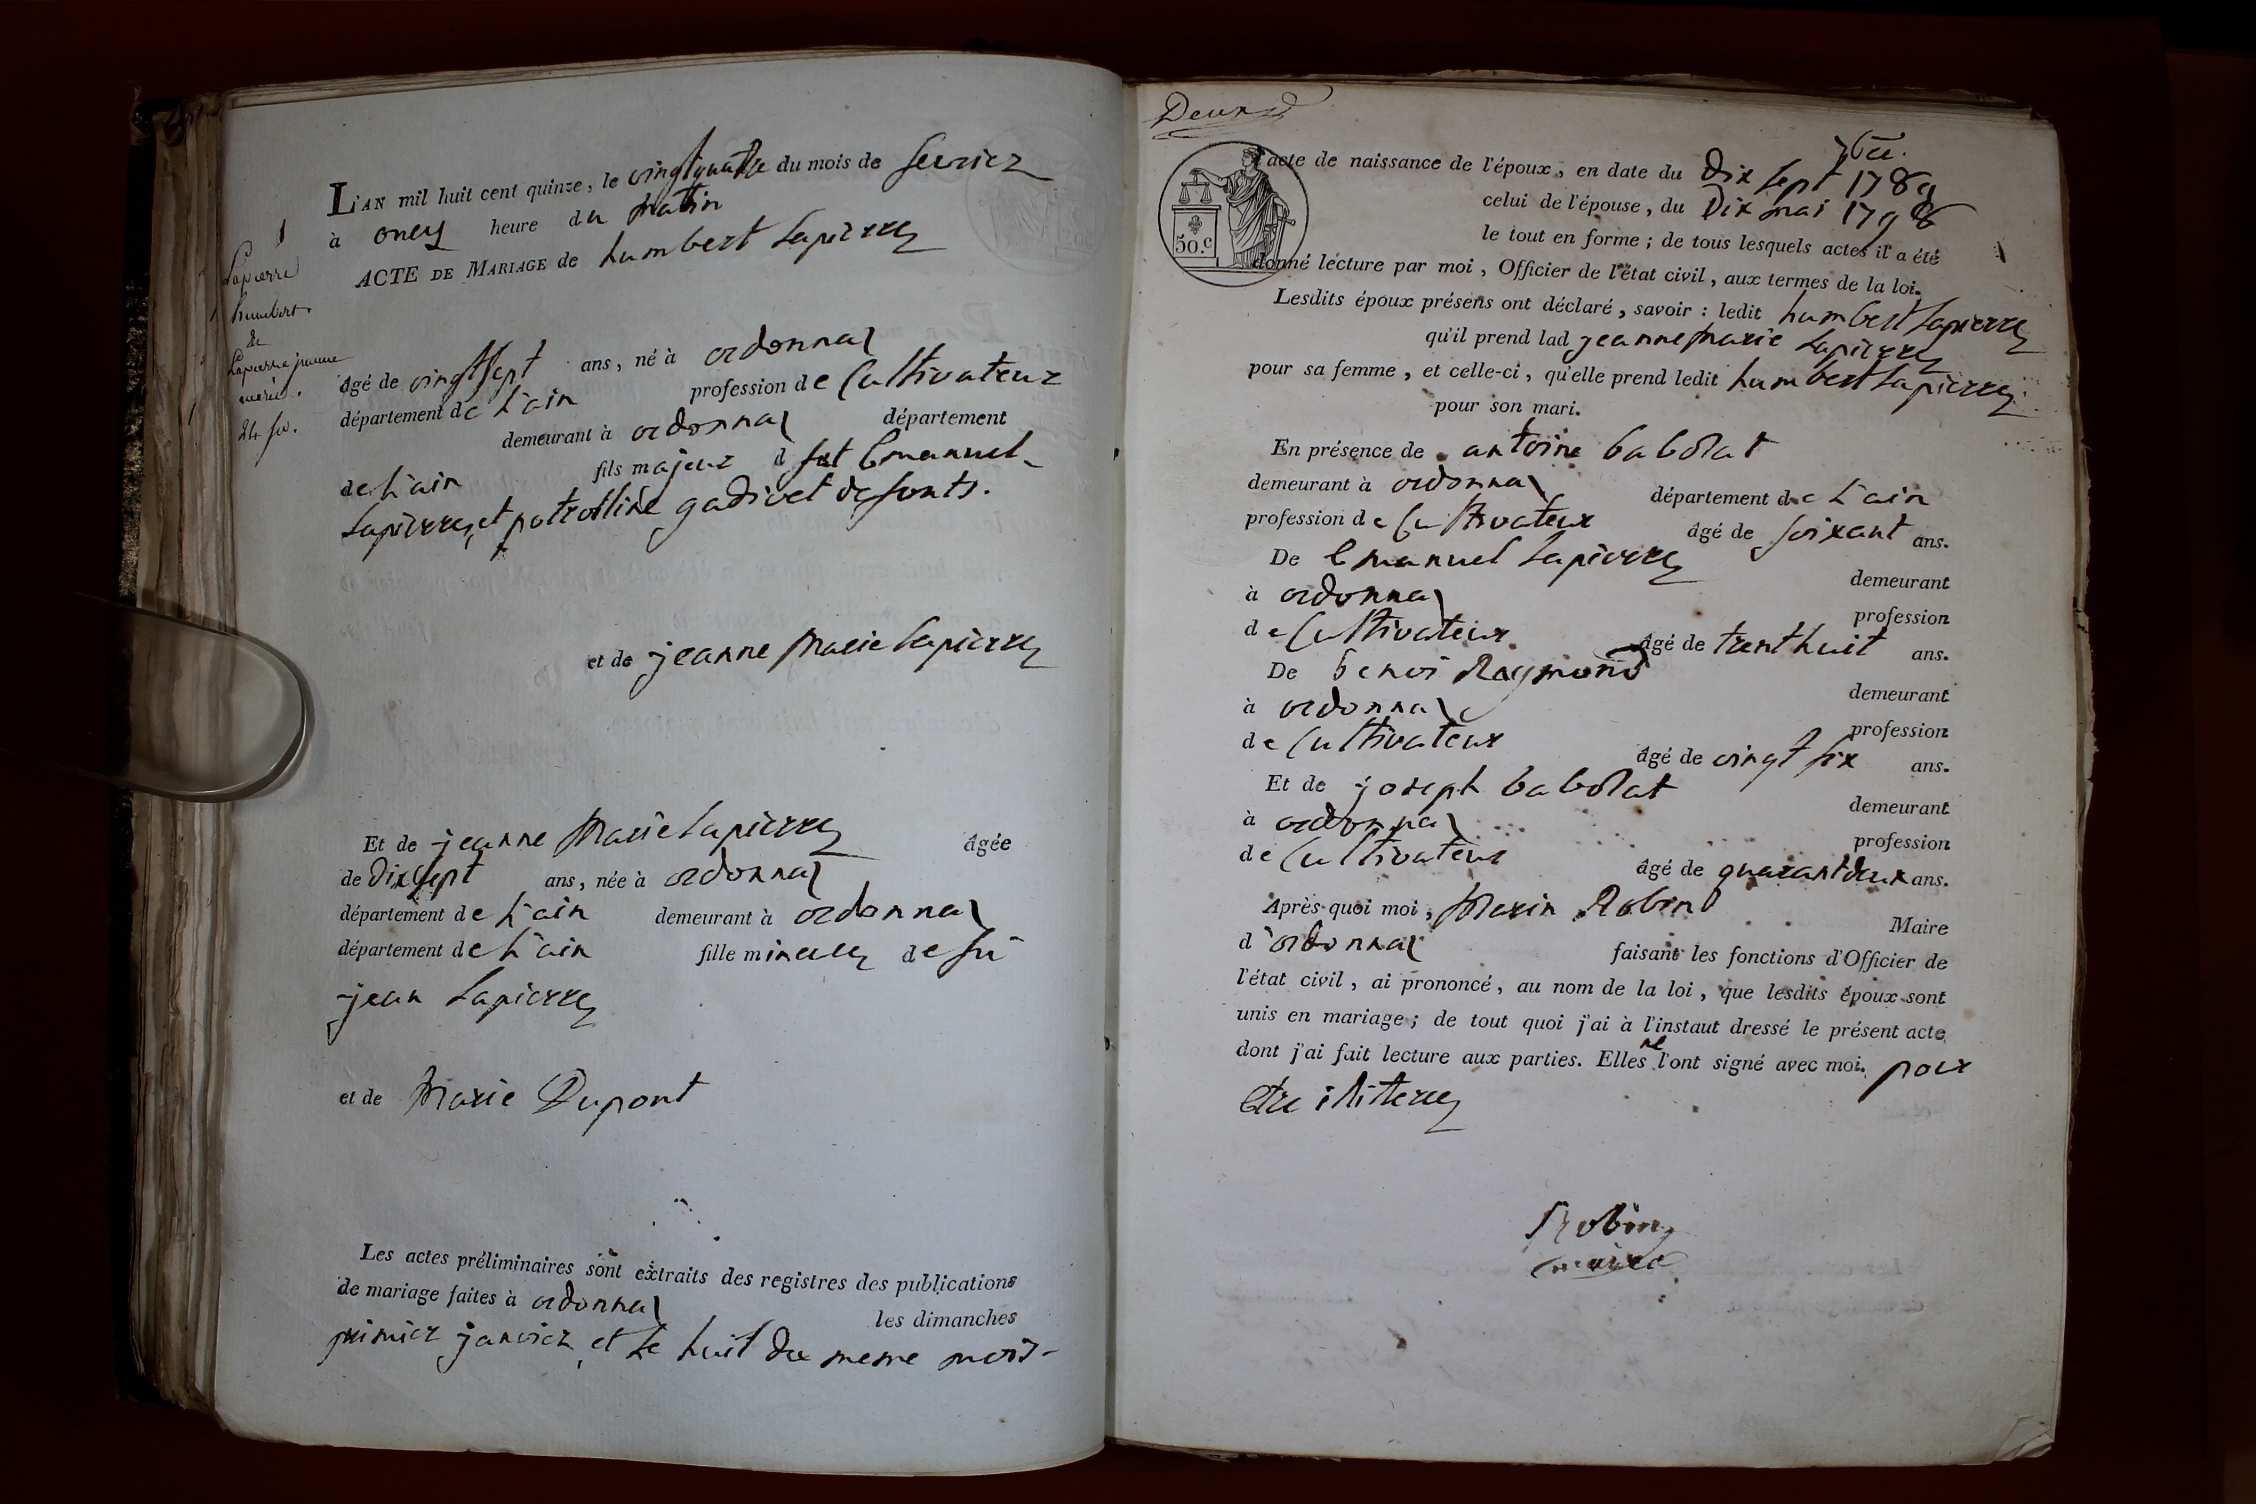 L'AN mil huit cent quinze, le vingtquatre du mois de fevrier
à onez heure du matin
ACTE DE MARIAGE de humbert Lapierre
1
Lapierre
humbert.
de
Lapierre jeanne
marie.
24 fer.
âgé de vingtsept ans, né à ordonnaz
département de L'ain profession de Cultivateur
demeurant à ordonnaz département
de L'ain fils majeur d fut Emanuel
Lapierre, et patrolline gadivet defunts.
et de jeanne Marie Lapierre
Et de jeanne Marie Lapierre âgée
de Dixsept ans, née à ordonnaz
département de L'ain demeurant à ordonnaz
département de L'ain fille mineure de fû
jean Lapierre
et de Marie Dupont
Les actes préliminaires sont extraits des registres des publications
de mariage faites à ordonnaz les dimanches
primier janvier, et Le huit du meme mois-
Deux
50.c
l'acte de naissance de l'époux, en date du Dix sept 1789
celui de l'épouse, du Dix mai 1798
le tout en forme; de tous lesquels actes il a été
donné lecture par moi, Officier de l'état civil, aux termes de la loi.
Lesdits époux présens ont déclaré, savoir : ledit humbert Lapierre
qu'il prend lad jeanne Marie Lapierre
pour sa femme, et celle-ci, qu'elle prend ledit humbert Lapierre
pour son mari.
En présence de antoine babolat
demeurant à ordonnaz département de L'ain
profession de Cultivateur âgé de soixant ans.
De Emanuel Lapierre demeurant
à ordonnaz profession
de Cultivateur âgé de trenthuit ans.
De benoi Raymond demeurant
à ordonnaz profession
de Cultivateur âgé de vingt six ans.
Et de joseph babolat demeurant
à ordonnaz profession
de Cultivateur âgé de quarantdeux ans.
Après quoi moi, Marin Robin Maire
d'ordonnaz faisant les fonctions d'Officier de
l'état civil, ai prononcé, au nom de la loi, que lesdits époux sont
unis en mariage; de tout quoi j'ai à l'instaut dressé le présent acte
dont j'ai fait lecture aux parties. Elles ne l'ont signé avec moi. pour
Etre iliterez
Robin
maire